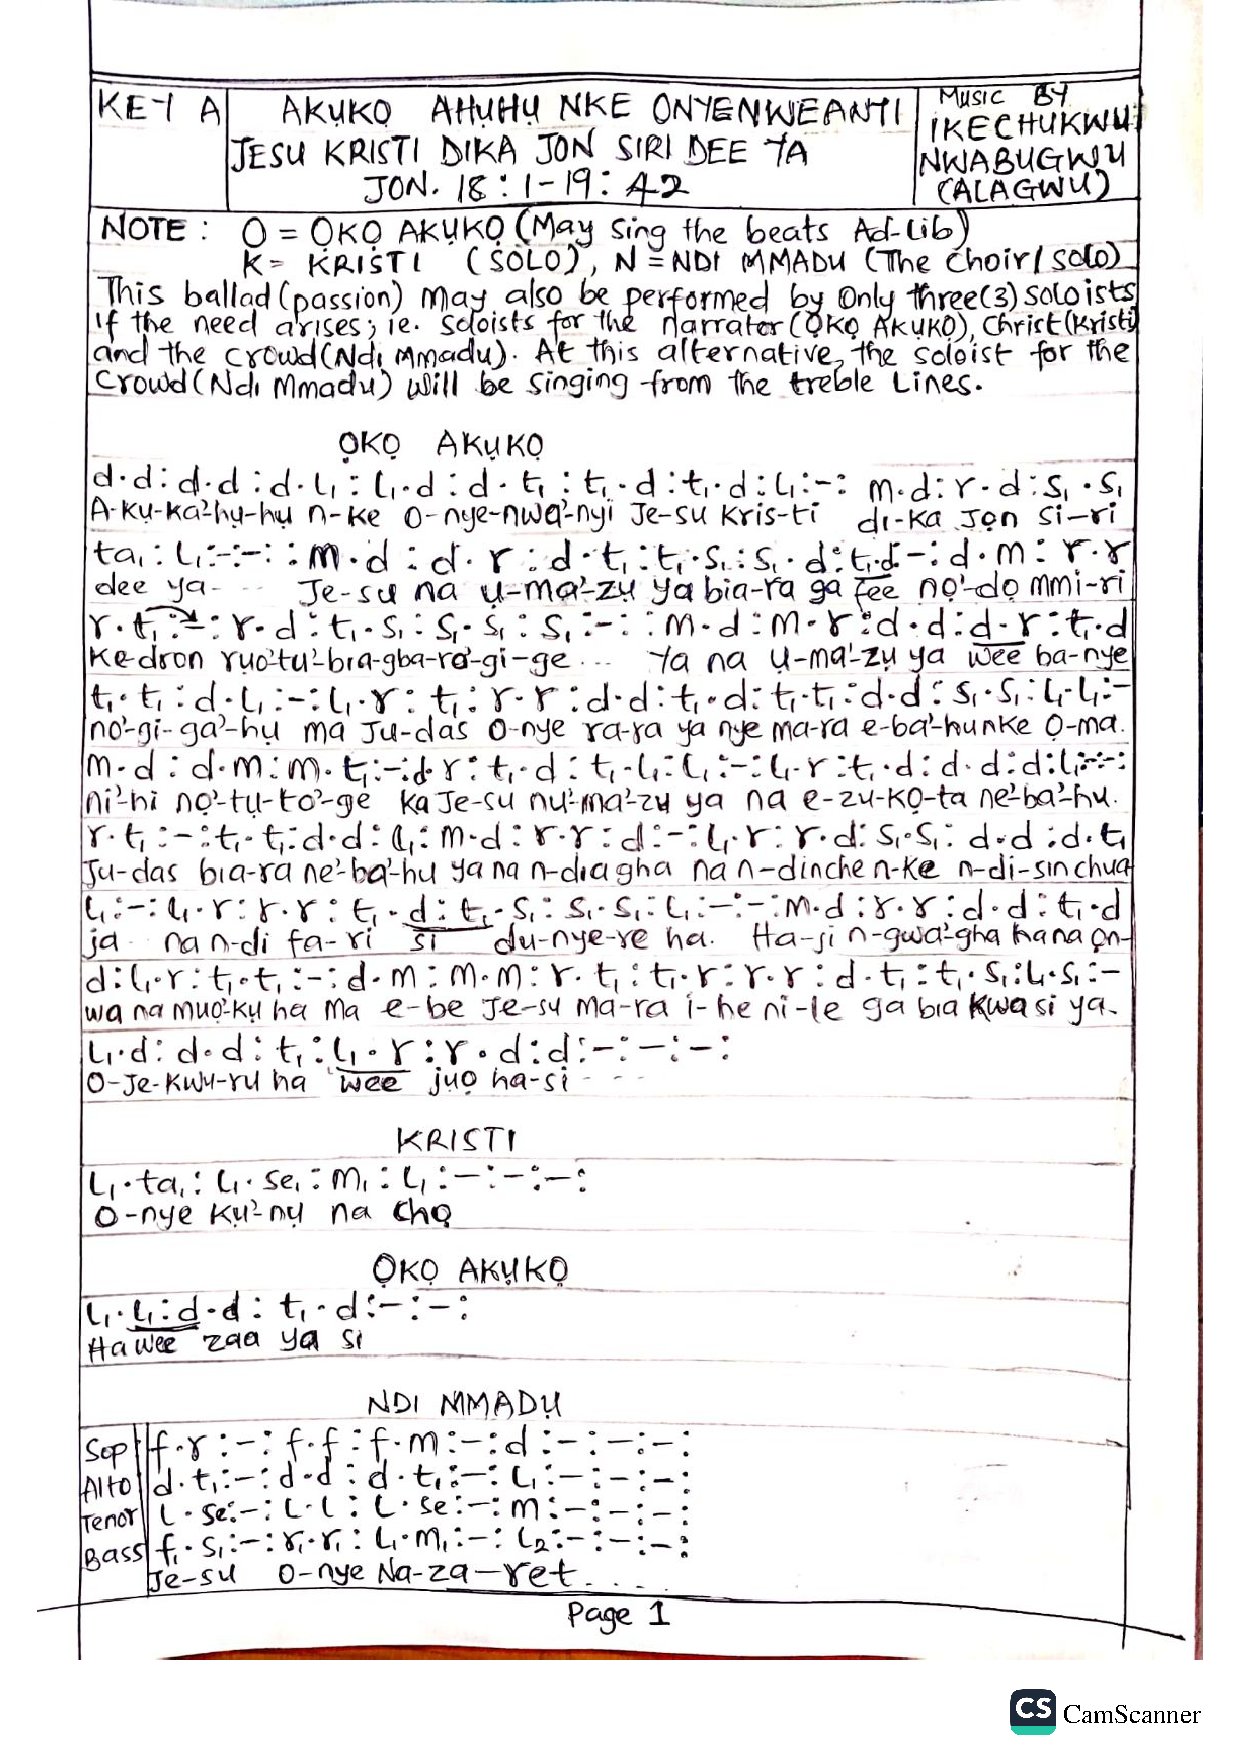 KEY A
AKỤKỌ AHỤHỤ NKE ONYENWEANYI
JESU KRISTI DIKA JON SIRI DEE YA
JON. 18 : 1-19 : 42
MUSIC BY
IKECHUKWU
NWABUGWU
(ALAGWU)
NOTE : O = ỌKỌ AKỤKỌ (May Sing the beats Ad-Lib)
K = KRISTI (SOLO), N = NDI MMADU (The choir/solo)
This ballad (passion) may also be performed by only three(3) soloists
if the need arises; ie. soloists for the narrator (ỌKỌ AKỤKỌ), Christ (Kristi)
and the crowd (Ndi Mmadu). At this alternative, the soloist for the
Crowd (Ndi Mmadu) will be singing from the treble Lines.
ỌKỌ AKỤKỌ
d.d : d.d : d.l₁ : l₁.d : d.t₁ : t₁.d : t₁.d : l₁ :-: m.d : r.d : s₁.s₁
A-kụ-ka²-hụ-hụ n-ke o-nye-nwa²-nyi Je-su Kris-ti di-ka Jọn si-ri
ta₁ : l₁ :-:-: : m.d : d.r : d.t₁ : t₁.s₁ : s₁.d : t₁.d :-: d.m : r.r
dee ya- Je-su na ụ-ma²-zụ ya bia-ra ga fee nọ²-dọ mmi-ri
r.t₁ :-: r.d : t₁.s₁ : s₁.s₁ : s₁ :-: : m.d : m.r : d.d : d.r : t₁.d
Ke-dron ruo²tu²-bịa-gba-ra²-gi-ge... Ya na ụ-ma²-zụ ya wee ba-nye
t₁.t₁ : d.l₁ :-: l₁.r : t₁ : r.r : d.d : t₁.d : t₁.t₁ : d.d : s₁.s₁ : l₁.l₁ :-
nọ²-gi-ga²-hụ ma Ju-das o-nye ra-ra ya nye ma-ra e-ba²-hụ nke ọ-ma.
m.d : d.m : m.t₁ :-: d.r : t₁.d : t₁.l₁ : l₁ :-: l₁.r : t₁.d : d.d : d : l₁ :-:-:
ni²-hi nọ²-tụ-to²-ge ka Je-su nụ²-ma²-zụ ya na e-zu-kọ-ta ne²-ba²-hụ.
r.t₁ :-: t₁.t₁ : d.d : l₁ : m.d : r.r : d :-: l₁.r : r.d : s₁.s₁ : d.d : d.t₁
Ju-das bịa-ra ne²-ba²-hụ ya na n-diagha na n-dinche n-ke n-di-sinchụa
l₁ :-: l₁.r : r.r : t₁.d : t₁.s₁ : s₁.s₁ : l₁ :-:-: m.d : r.r : d.d : t₁.d
ja na n-di fa-ri si du-nye-re ha. Ha-ji n-gwa²-gha ha na ọn-
d : l₁.r : t₁.t₁ :-: d.m : m.m : r.t₁ : t₁.r : r.r : d.t₁ : t₁.s₁ : l₁.s₁ :-
wa na muọ²-kụ ha ma e-be Je-su ma-ra i-he ni-le ga bia kwasi ya.
l₁.d : d.d : t₁ : l₁.r : r.d : d :-:-:-:
O-je-kwu-ru ha wee jụọ ha-si
KRISTI
l₁.ta₁ : l₁.se₁ : m₁ : l₁ :-:-:-:
O-nye kụ²-nụ na chọ
ỌKỌ AKỤKỌ
l₁.l₁ : d.d : t₁.d :-:-:
Ha wee zaa ya si
NDI MMADỤ
Sop f.r :-: f.f : f.m :-: d :-:-:-:
Alto d.t₁ :-: d.d : d.t₁ :-: l₁ :-:-:-:
Tenor l.se :-: l.l : l.se :-: m :-:-:-:
Bass f₁.s₁ :-: r₁.r₁ : l₁.m₁ :-: l₂ :-:-:-:
Je-su O-nye Na-za-ret....
Page 1
CS CamScanner